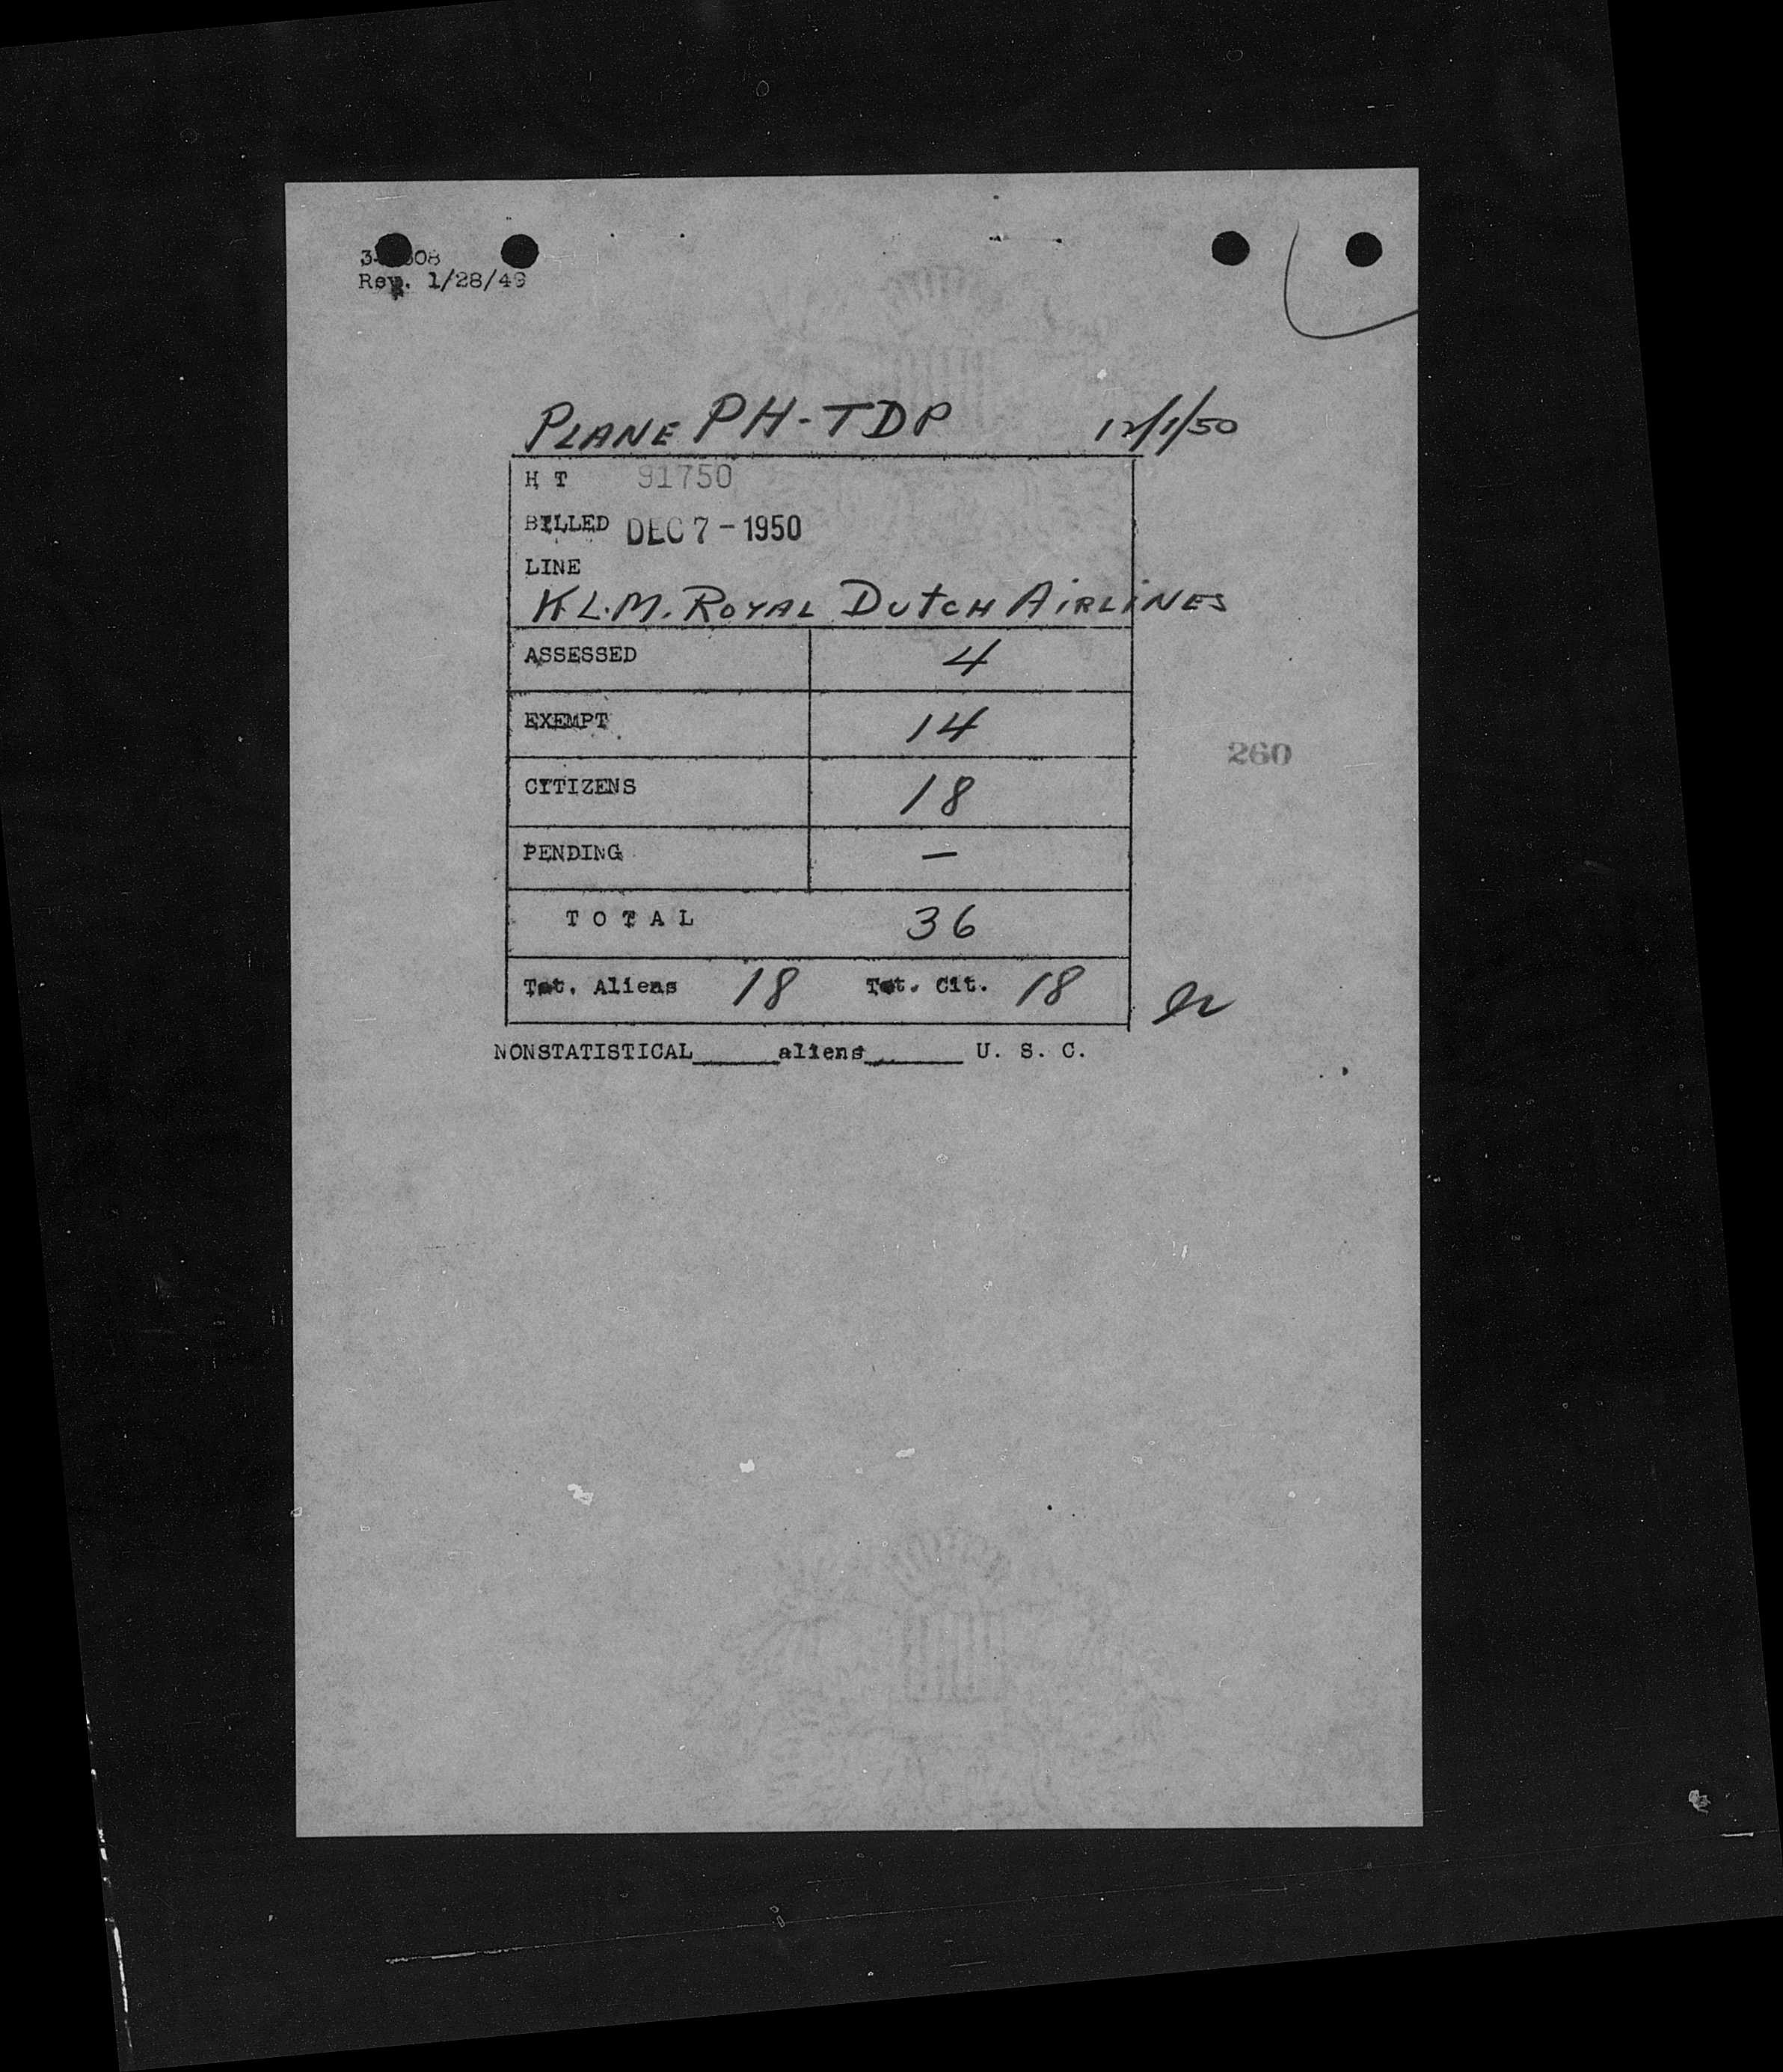 Rev. 1/28/49
PLANE PH-TDP 12/1/50
H T 91750
BILLED DEC 7 - 1950
LINE
K L.M. ROYAL DUTCH AIRLINES
ASSESSED 4
EXEMPT 14
260
CITIZENS 18
PENDING —
T O T A L 36
Tot. Aliens 18 Tot. Cit. 18
NONSTATISTICAL______aliens_______ U. S. C.